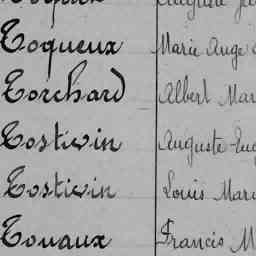 Toqueux Marie Ange
Torchard Albert Mar
Tostivin Auguste Eug
Tostivin Louis Mari
Touaux Francis M